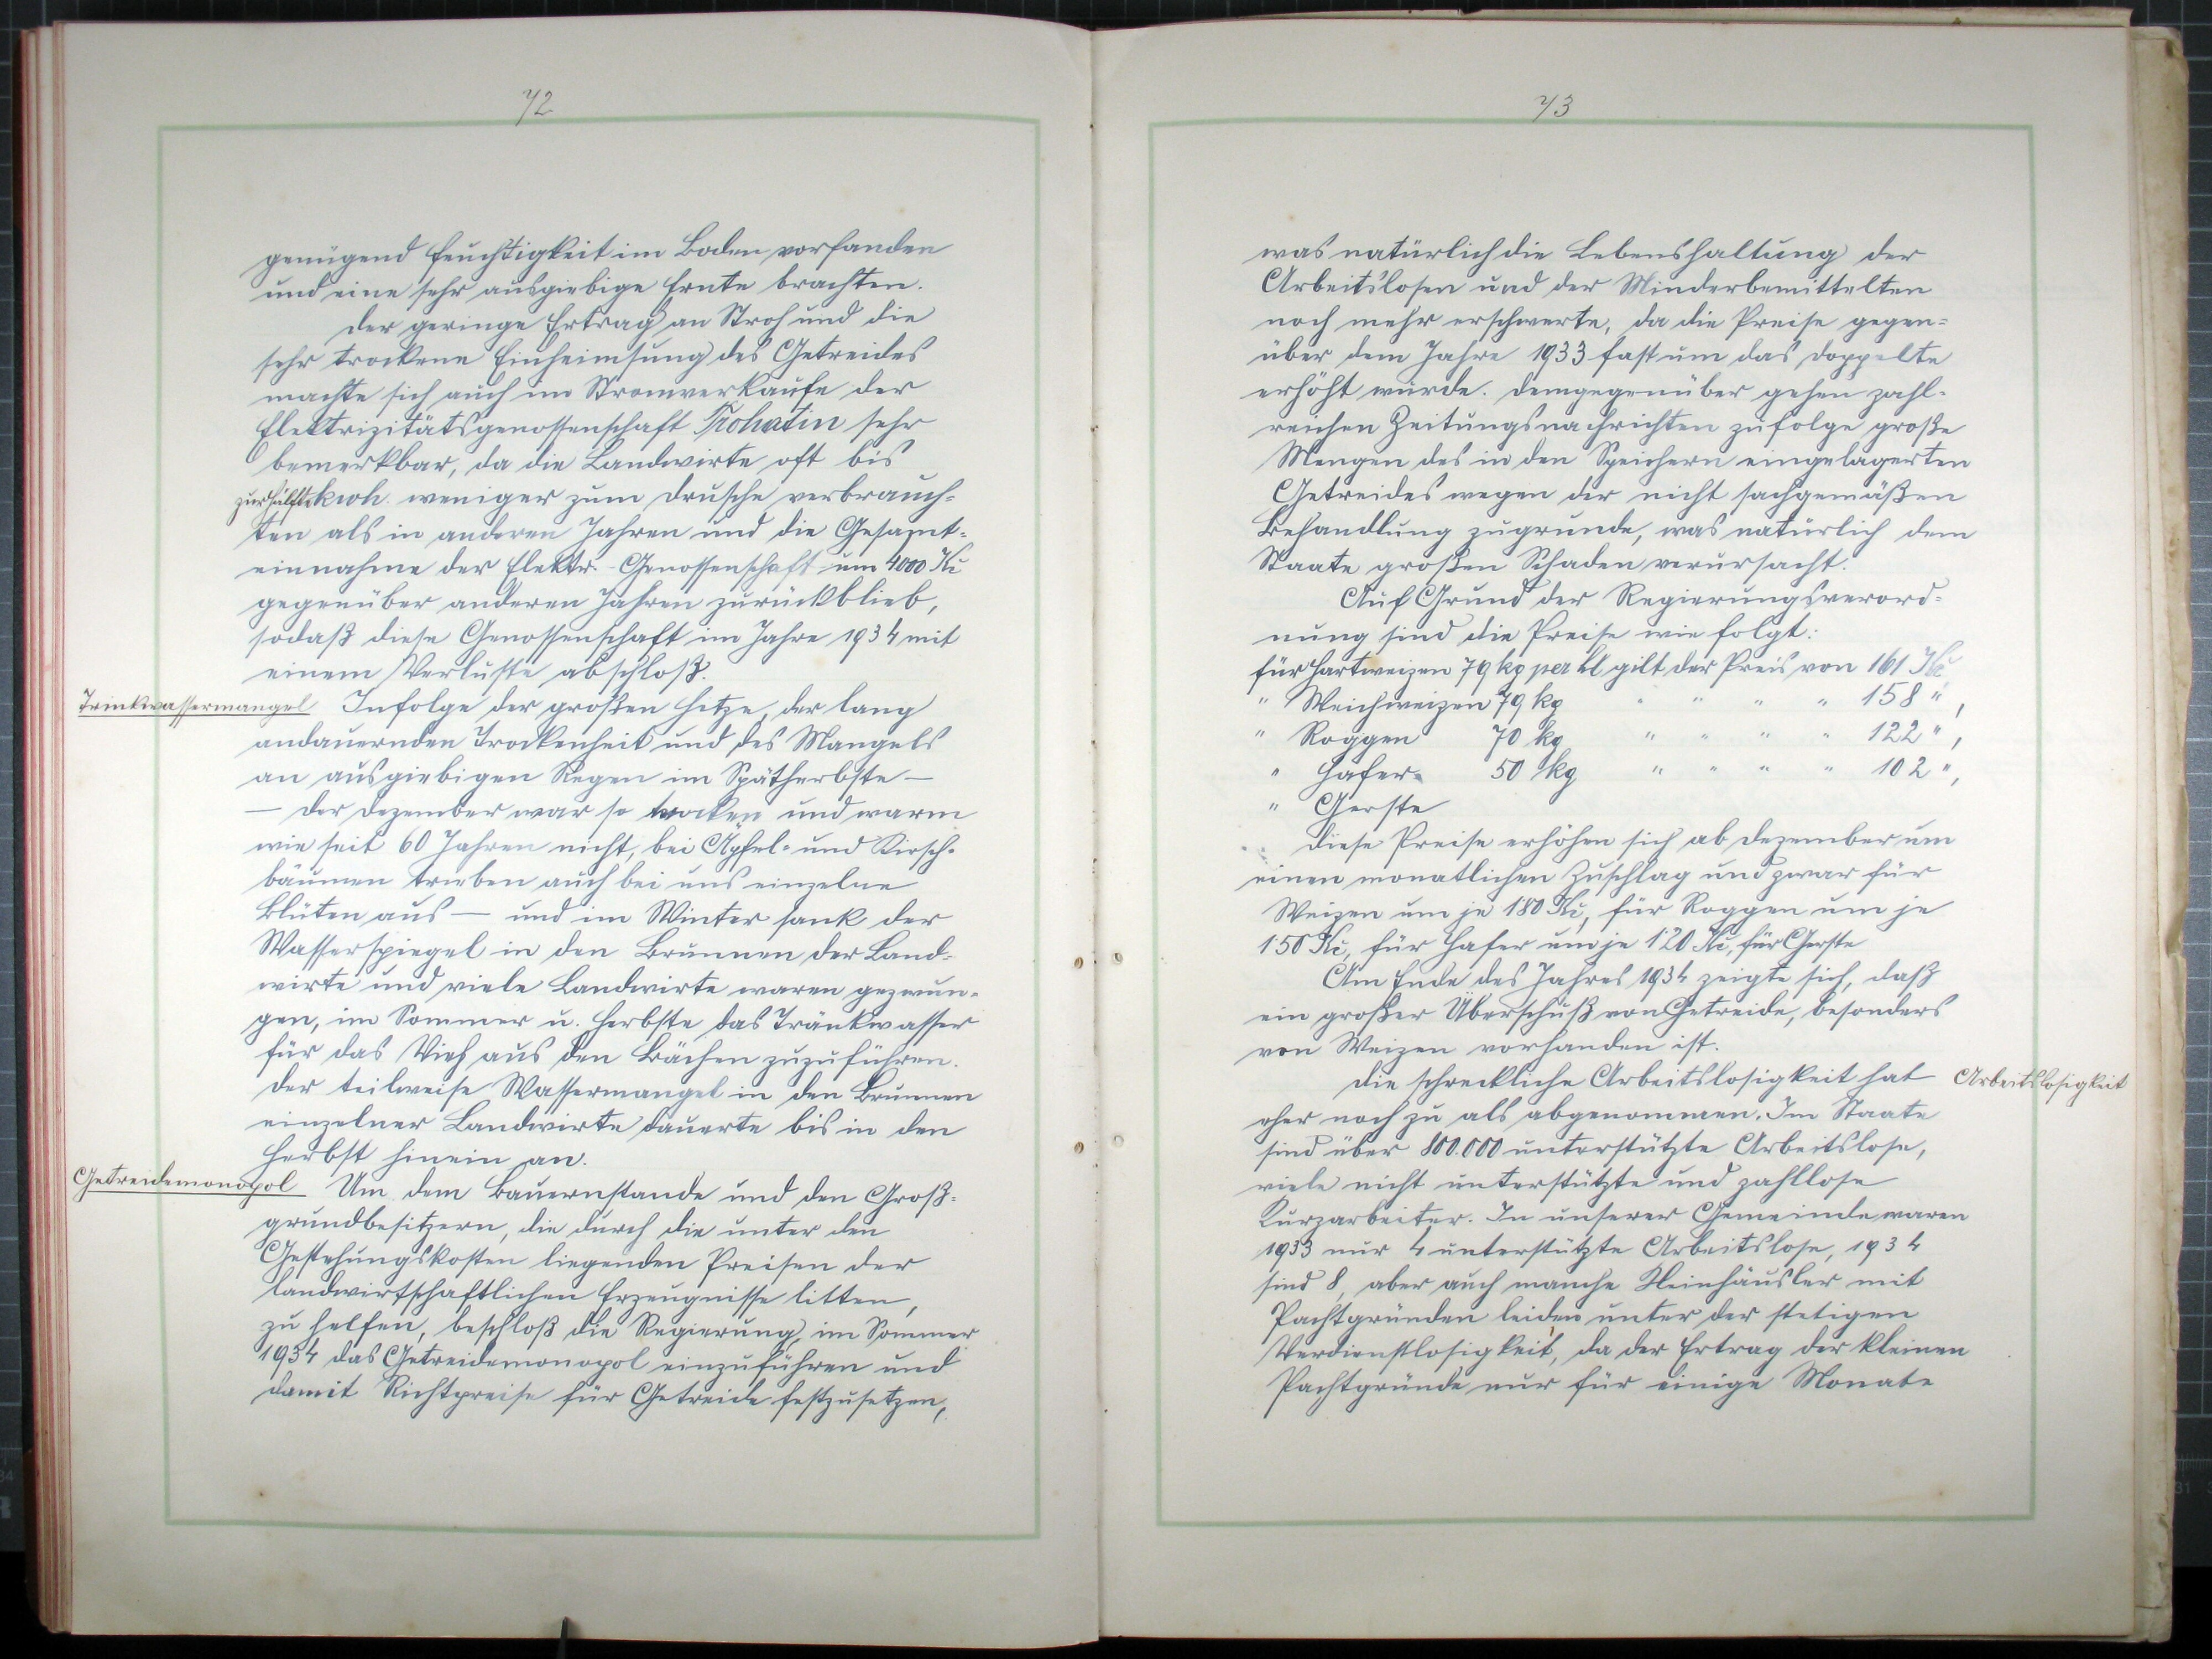 72
genügend Feuchtigkeit im Boden vorfanden
und eine sehr ausgiebige Ernte brachten.
Der geringe Ertrag an Stroh und die
sehr trockene Einheimsung des Getreides
machte sich auch im Stromverkaufe der
Elektrizitätsgenossenschaft Prohatin sehr
bemerkbar, da die Landwirte oft bis
zur Hälfte kwh. weniger zum Drusche verbrauch=
ten als in anderen Jahren und die Gesamt=
einnahme der Elektr.-Genossenschaft um 4000 Kč
gegenüber anderen Jahren zurückblieb,
sodaß diese Genossenschaft im Jahre 1934 mit
einem Verluste abschloß.
Trinkwassermangel Infolge der großen Hitze, der lang
andauernden Trockenheit und des Mangels
an ausgiebigen Regen im Spätherbste —
— der Dezember war so trocken und warm
wie seit 60 Jahren nicht, bei Äpfel= und Kirsch=
bäumen trieben auch bei uns einzelne
Blüten aus — und im Winter sank der
Wasserspiegel in den Brunnen der Land=
wirte und viele Landwirte waren gezwun=
gen, im Sommer u. Herbste das Tränkwasser
für das Vieh aus den Bächen zuzuführen.
Der teilweise Wassermangel in den Brunnen
einzelner Landwirte dauerte bis in den
Herbst hinein an.
Getreidemonopol Um dem Bauernstande und den Groß=
grundbesitzern, die durch die unter den
Gestehungskosten liegenden Preisen der
landwirtschaftlichen Erzeugnisse litten,
zu helfen, beschloß die Regierung, im Sommer
1934 das Getreidemonopol einzuführen und
damit Richtpreise für Getreide festzusetzen,
73
was natürlich die Lebenshaltung der
Arbeitslosen und der Minderbemittelten
noch mehr erschwerte, da die Preise gegen=
über dem Jahre 1933 fast um das doppelte
erhöht wurde. Demgegenüber gehen zahl=
reichen Zeitungsnachrichten zufolge große
Mengen des in den Speichern eingelagerten
Getreides wegen der nicht sachgemäßen
Behandlung zugrunde, was natürlich dem
Staate großen Schaden verursacht.
Auf Grund der Regierungsverord=
nung sind die Preise wie folgt:
für Hartweizen 79 kg per hl gilt der Preis von 161 Kč
" Weichweizen 79 kg " " " " 158 ",
" Roggen 70 kg " " " " 122 ",
" Hafer 50 kg " " " " 102 ",
" Gerste
Diese Preise erhöhen sich ab Dezember um
einen monatlichen Zuschlag und zwar für
Weizen um je 1·80 Kč, für Roggen um je
1·50 Kč, für Hafer um je 1·20 Kč, für Gerste
Am Ende des Jahres 1934 zeigte sich, daß
ein großer Überschuß von Getreide, besonders
von Weizen vorhanden ist.
Die schreckliche Arbeitslosigkeit hat Arbeitslosigkeit
eher noch zu als abgenommen. Im Staate
sind über 800.000 unterstützte Arbeitslose,
viele nicht unterstützte und zahllose
Kurzarbeiter. In unserer Gemeinde waren
1933 nur 4 unterstützte Arbeitslose, 1934
sind 8, aber auch manche Kleinhäusler mit
Pachtgründen leiden unter der stetigen
Verdienstlosigkeit, da der Ertrag der kleinen
Pachtgründe nur für einige Monate